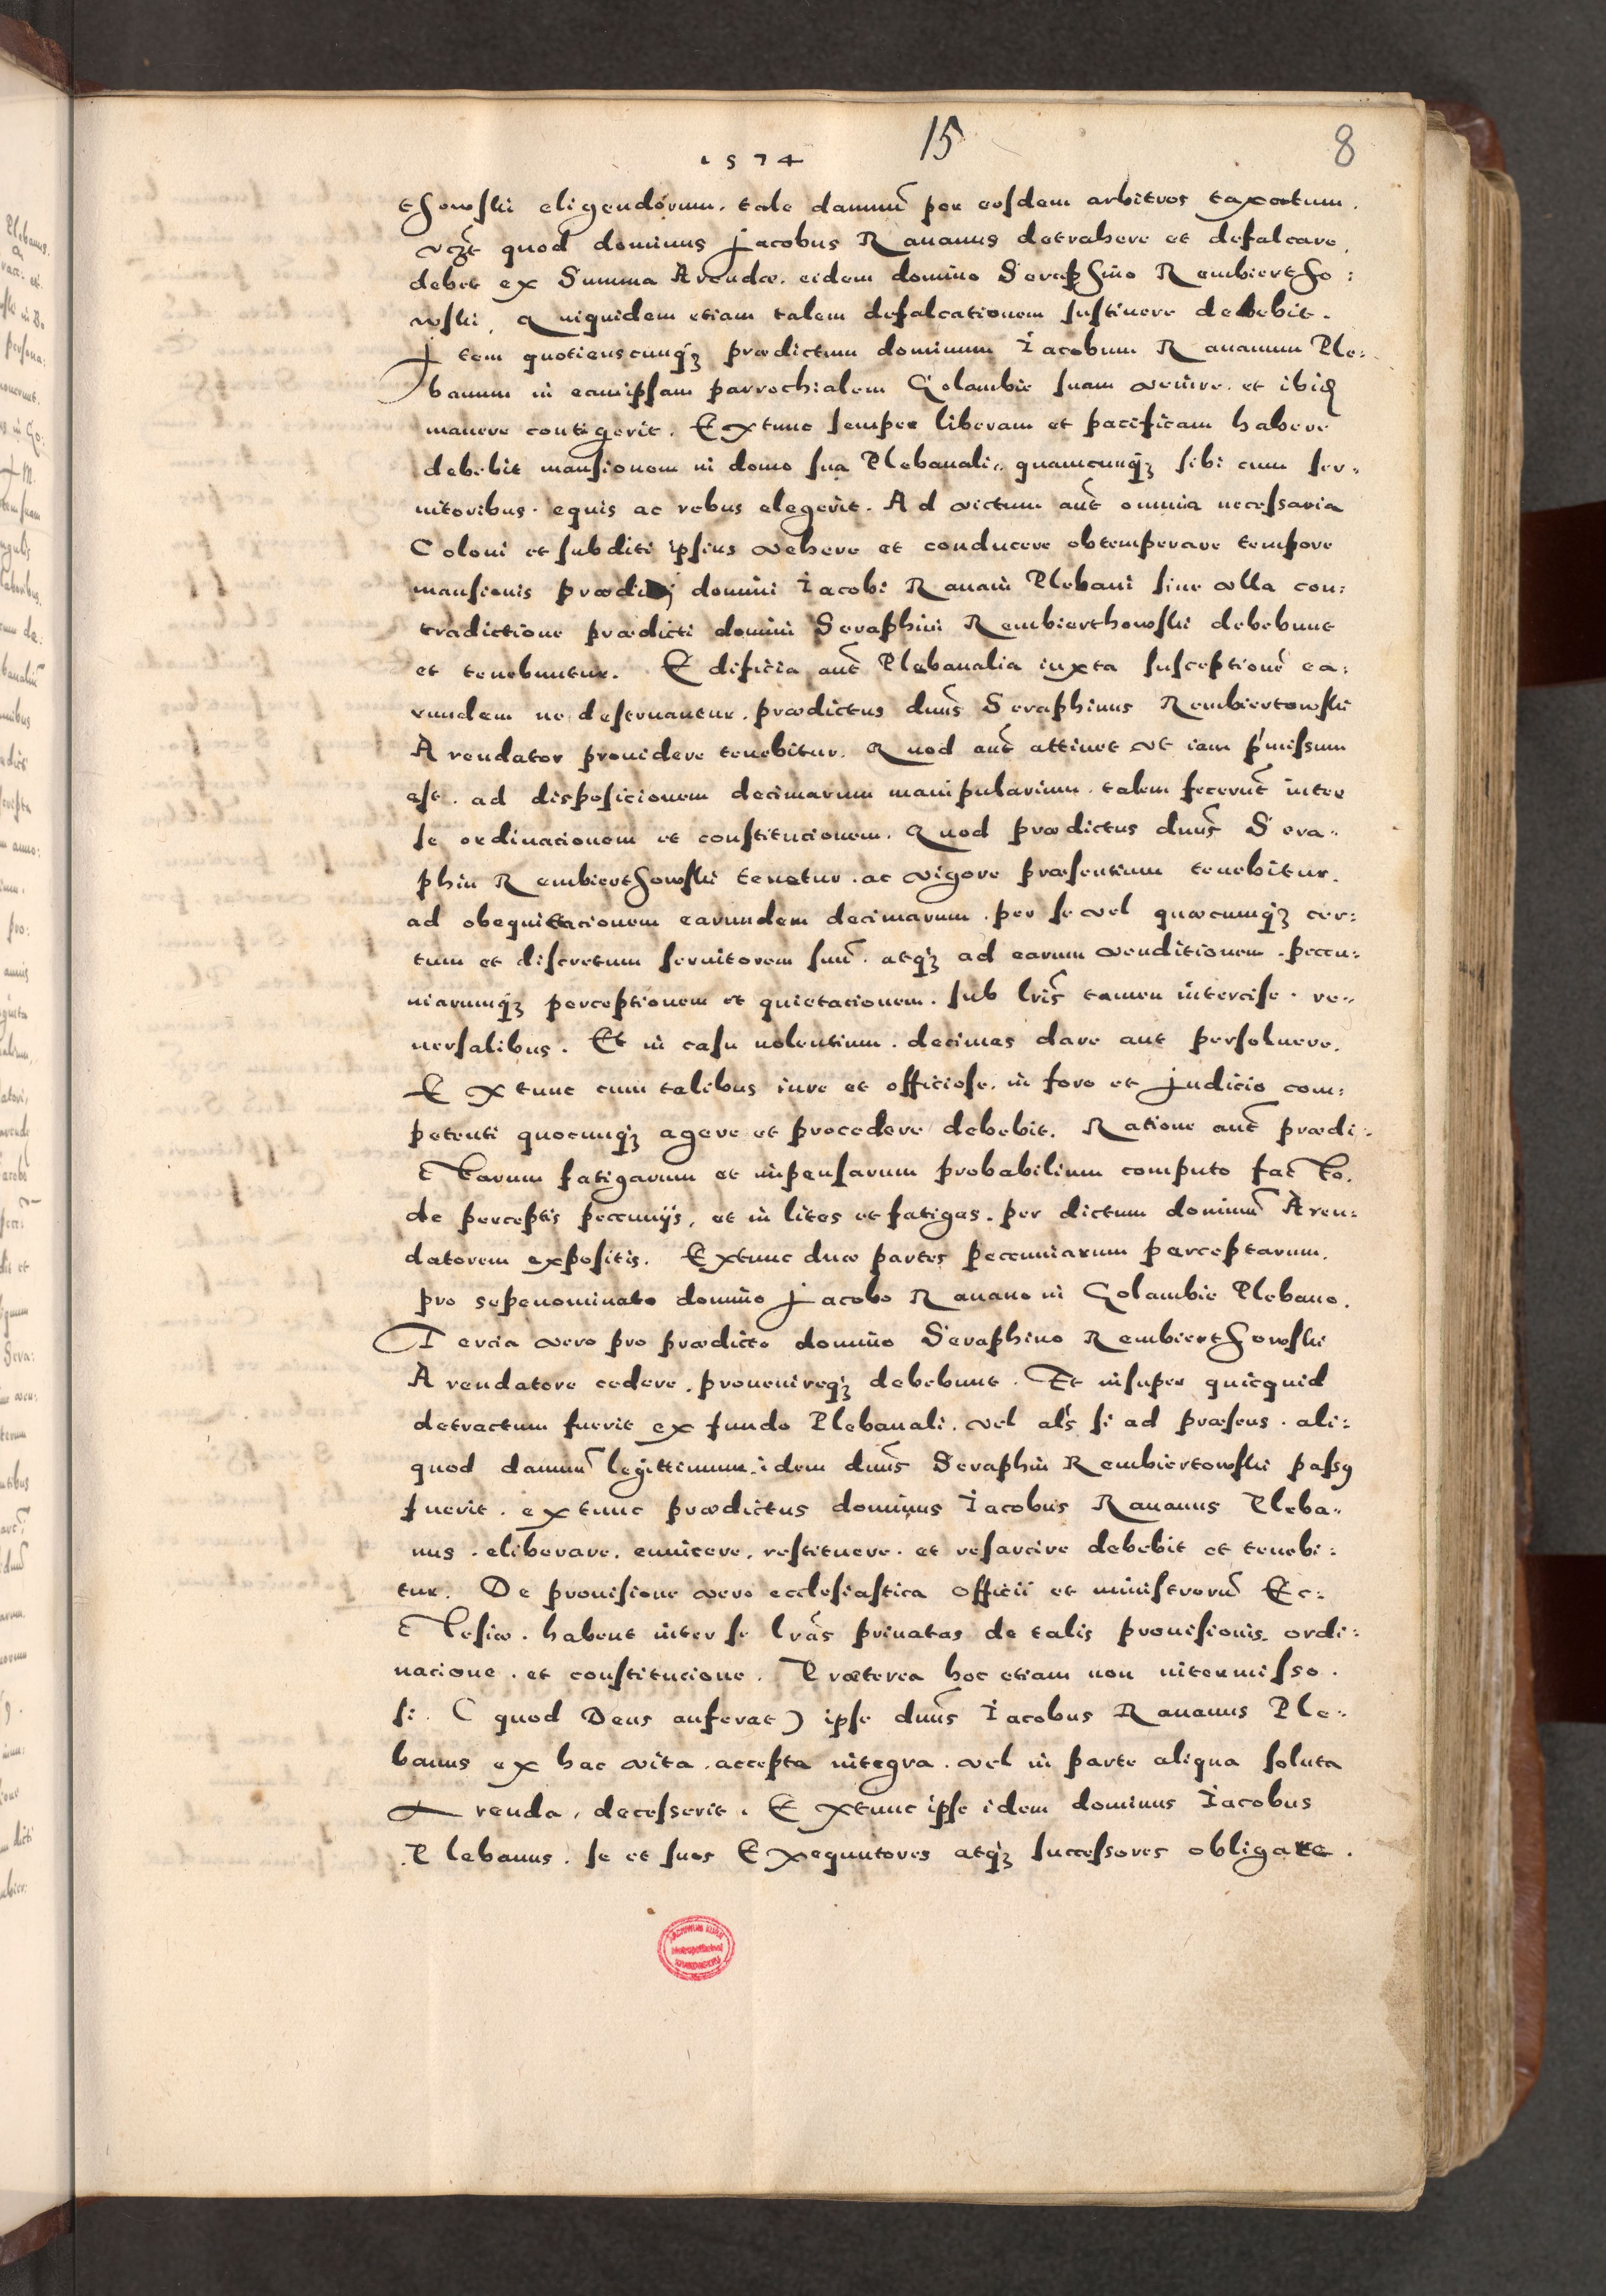 15
8
1574
thowski eligendorum. tale damnũ per eosdem arbitros taxatum.
vczt quod dominus Jacobus Rauanus detrahere et defalcare.
debet ex Summa Arendæ. eidem domino Seraphino Rembiertho:
wski. Quiquidem etiam talem defalcationem sustinere debebit.
Item quotienscunqz prædictum dominum Iacobum Rauanum Ple:
banum in eamipsam parrochialem Golambie suam venire. et ibid
manere contigerit. Extunc semper liberam et pacificam habere
debebit mansionem in domo sua Plebanali. quamcunqz sibi cum ser:
uitoribus. equis ac rebus elegerit. Ad victum aut̃ omnia necessaria
Coloni et subditi ipsius vehere et conducere obtemperare tempore
mansionis prædicti domini Iacobi Rauani Plebani sine vlla con:
tradictione prædicti domini Seraphini Rembierthowski debebunt
et tenebuntur. Edificia aut̃ Plebanalia iuxta susceptionẽ ea:
rundem ne destruantur. prædictus dnũs Seraphinus Rembiertowski
Arendator prouidere tenebitur. Quod aut̃ attinet vt iam p̃missum
est. ad disposicionem decimarum manipularium. talem fecerũt inter
se ordinacionem et constitucionem. Quod prædictus dnũs Sera:
phin Rembierthowski tenetur. ac vigore præsentium tenebitur.
ad obequittacionem earundem decimarum. per se vel quæcumqz cer:
tum et discretum seruitorem suũ. atqz ad earum venditionem. peccu:
niarumqz perceptionem et quietacionem. sub lris̃ tamen intercise. re:
uersalibus. Et in casu nolentium. decimas dare aut persoluere.
Extunc cum talibus iure et officiose. in foro et judicio com:
petenti quocunqz agere et procedere debebit. Ratione aut̃ prædi:
ctarum fatigarum et inpensarum probabilium computo facto.
de perceptis pecuniis, et in lites et fatigas. per dictum dominũ Aren:
datorem expositis. Extunc duæ partes pecuniarum perceptarum.
pro sepenominato domino Jacobo Rauano in Golambie Plebano.
Tercia vero pro prædicto domino Seraphino Rembierthowski
Arendatore cedere. prouenireqz debebunt. Et insuper quicquid
detractum fuerit ex fundo Plebanali. vel als̃ si ad præsens. ali:
quod damnũ legittimum. idem dnũs Seraphin Rembiertowski passq
fuerit. extunc prædictus dominus Iacobus Rauanus Pleba:
nus. eliberare. euincere. restituere. et resarcire debebit et tenebi:
tur. De prouisione vero ecclesiastica officii et ministrorũ Ec:
clesiæ. habent inter se lrãs priuatas de talis prouisionis. ordi:
nacione. et constitucione. Præterea hoc etiam non intermisso.
si. (quod Deus auferat) ipse dnũs Iacobus Rauanus Ple:
banus ex hac vita. accepta integra. vel in parte aliqua soluta
Arenda. decesserit. Extunc ipse idem dominus Iacobus
Plebanus. se et suos Exequutores atqz successores obligare.